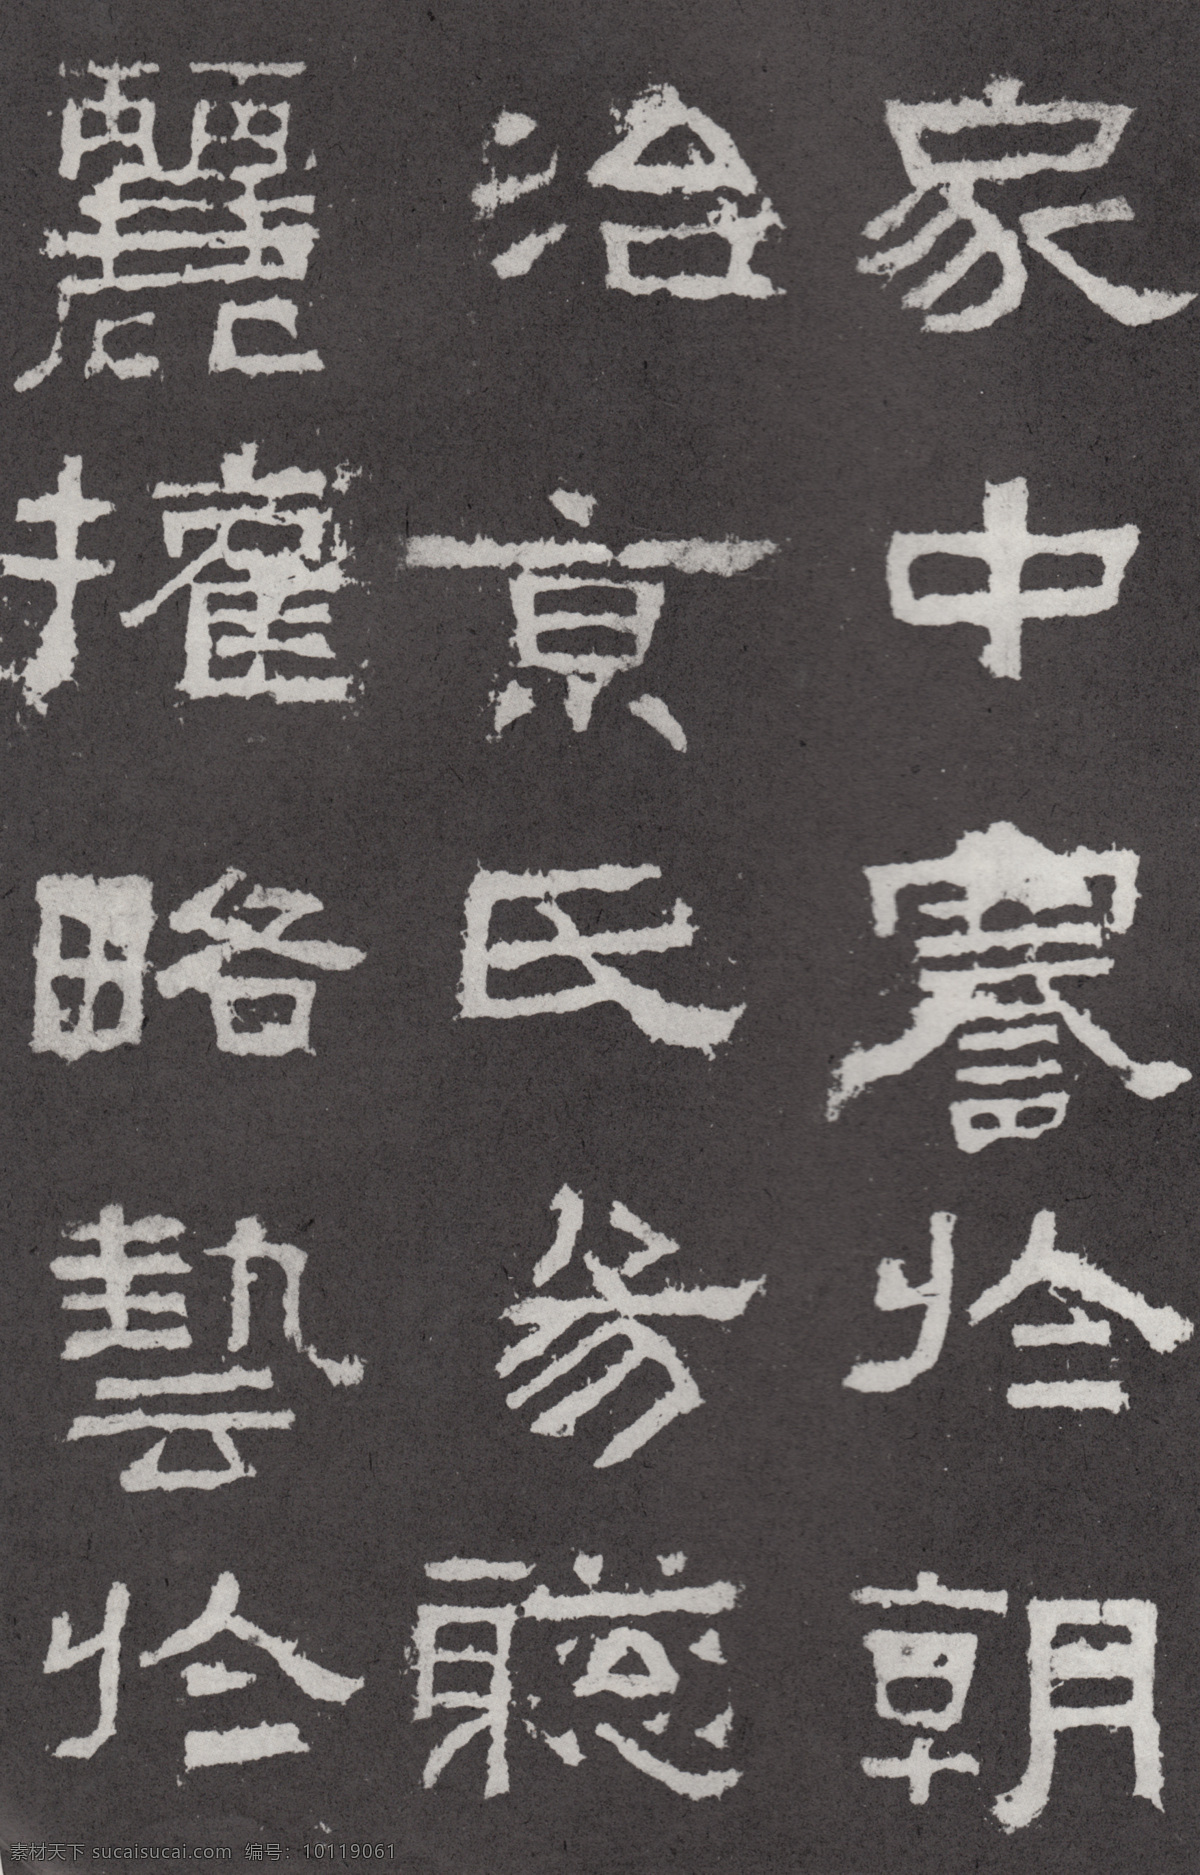 家中謇於朝
治京氏易聰
麗權略藝於
素材天下 sucaisucai.com 编号：10119061